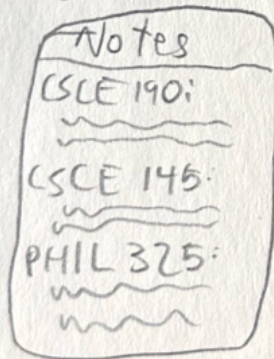 Notes
CSCE 190:
CSCE 145:
PHIL 325: